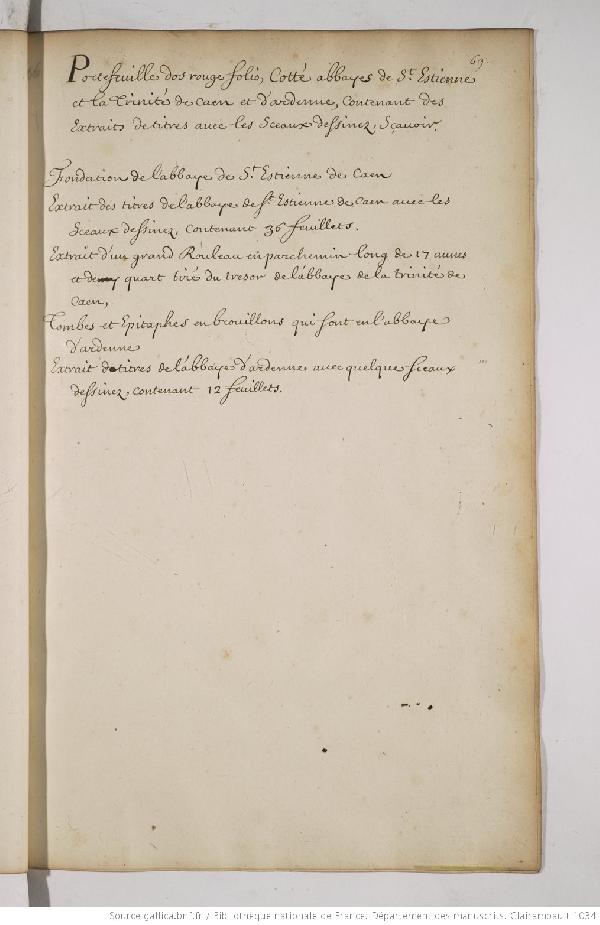 69.
Portefeuille dos rouge folio, Cotté abbayes de St. Estienne
et la Trinité de Caen et d'ardenne, Contenant des
Extraits de titres avec les Sceaux dessinez, Sçavoir.
Fondation de l'abbaye de St. Estienne de Caen
Extrait des titres de l'abbaye de St. Estienne de Caen avec les
Sceaux dessinez, Contenant 36 feuillets.
Extrait d'un grand Rouleau en parchemin long de 17 aunes
et demy quart tiré du tresor de l'abbaye de la trinité de
Caen,
Tombes et Epitaphes en brouillons qui sont en l'abbaye
d'ardenne
Extrait de titres de l'abbaye d'ardenne avec quelque sceaux
dessinez, Contenant 12 feuillets.
Source gallica.bnf.fr / Bibliothèque nationale de France. Département des manuscrits. Clairambault 1034